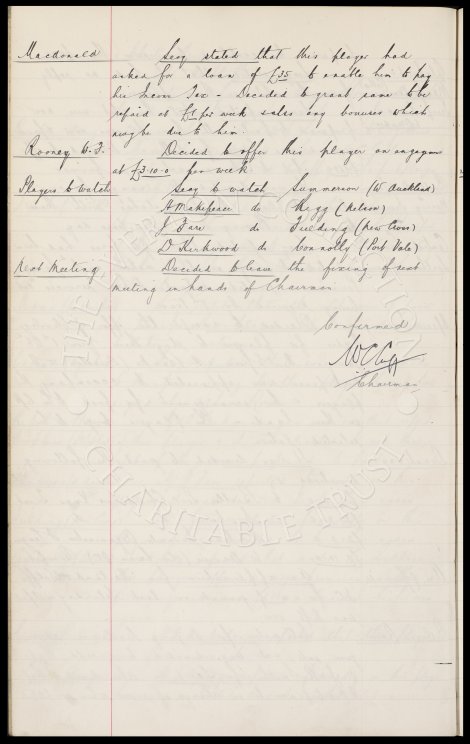 Macdonald Secy stated that this player had
asked for a loan of £35 to enable him to pay
his Income Tax - Decided to grant same to be
repaid at £1 per week & also any bonuses which
may be due to him.
Rooney W.F. Decided to offer this player an engagement
at £3-10-0 per week
Players to watch Secy to watch Summerson (W Auckland)
H Makepeace do Rigg (Nelson)
J Fare do Fielding (New Cross)
D Kirkwood do Connolly (Port Vale)
Next Meeting Decided to leave the fixing of next
meeting in hands of Chairman
Confirmed
W C Cuff
Chairman
THE
CHARITABLE TRUST